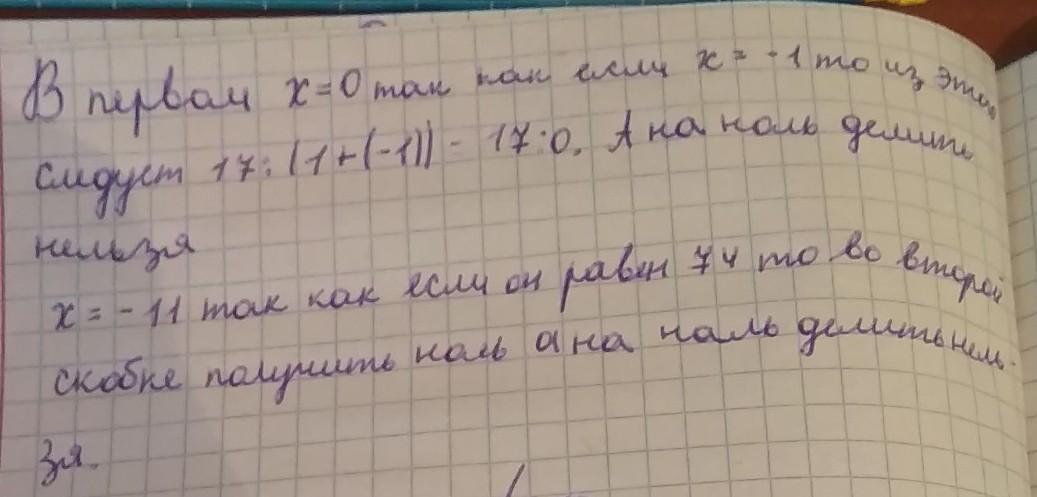 В первом x=0 так как если x = -1 то из этого
следует 17:(1+(-1)) = 17:0. А на ноль делить
нельзя
x = -11 так как если он равен 74 то во второй
скобке получить ноль а на ноль делить нель-
зя.